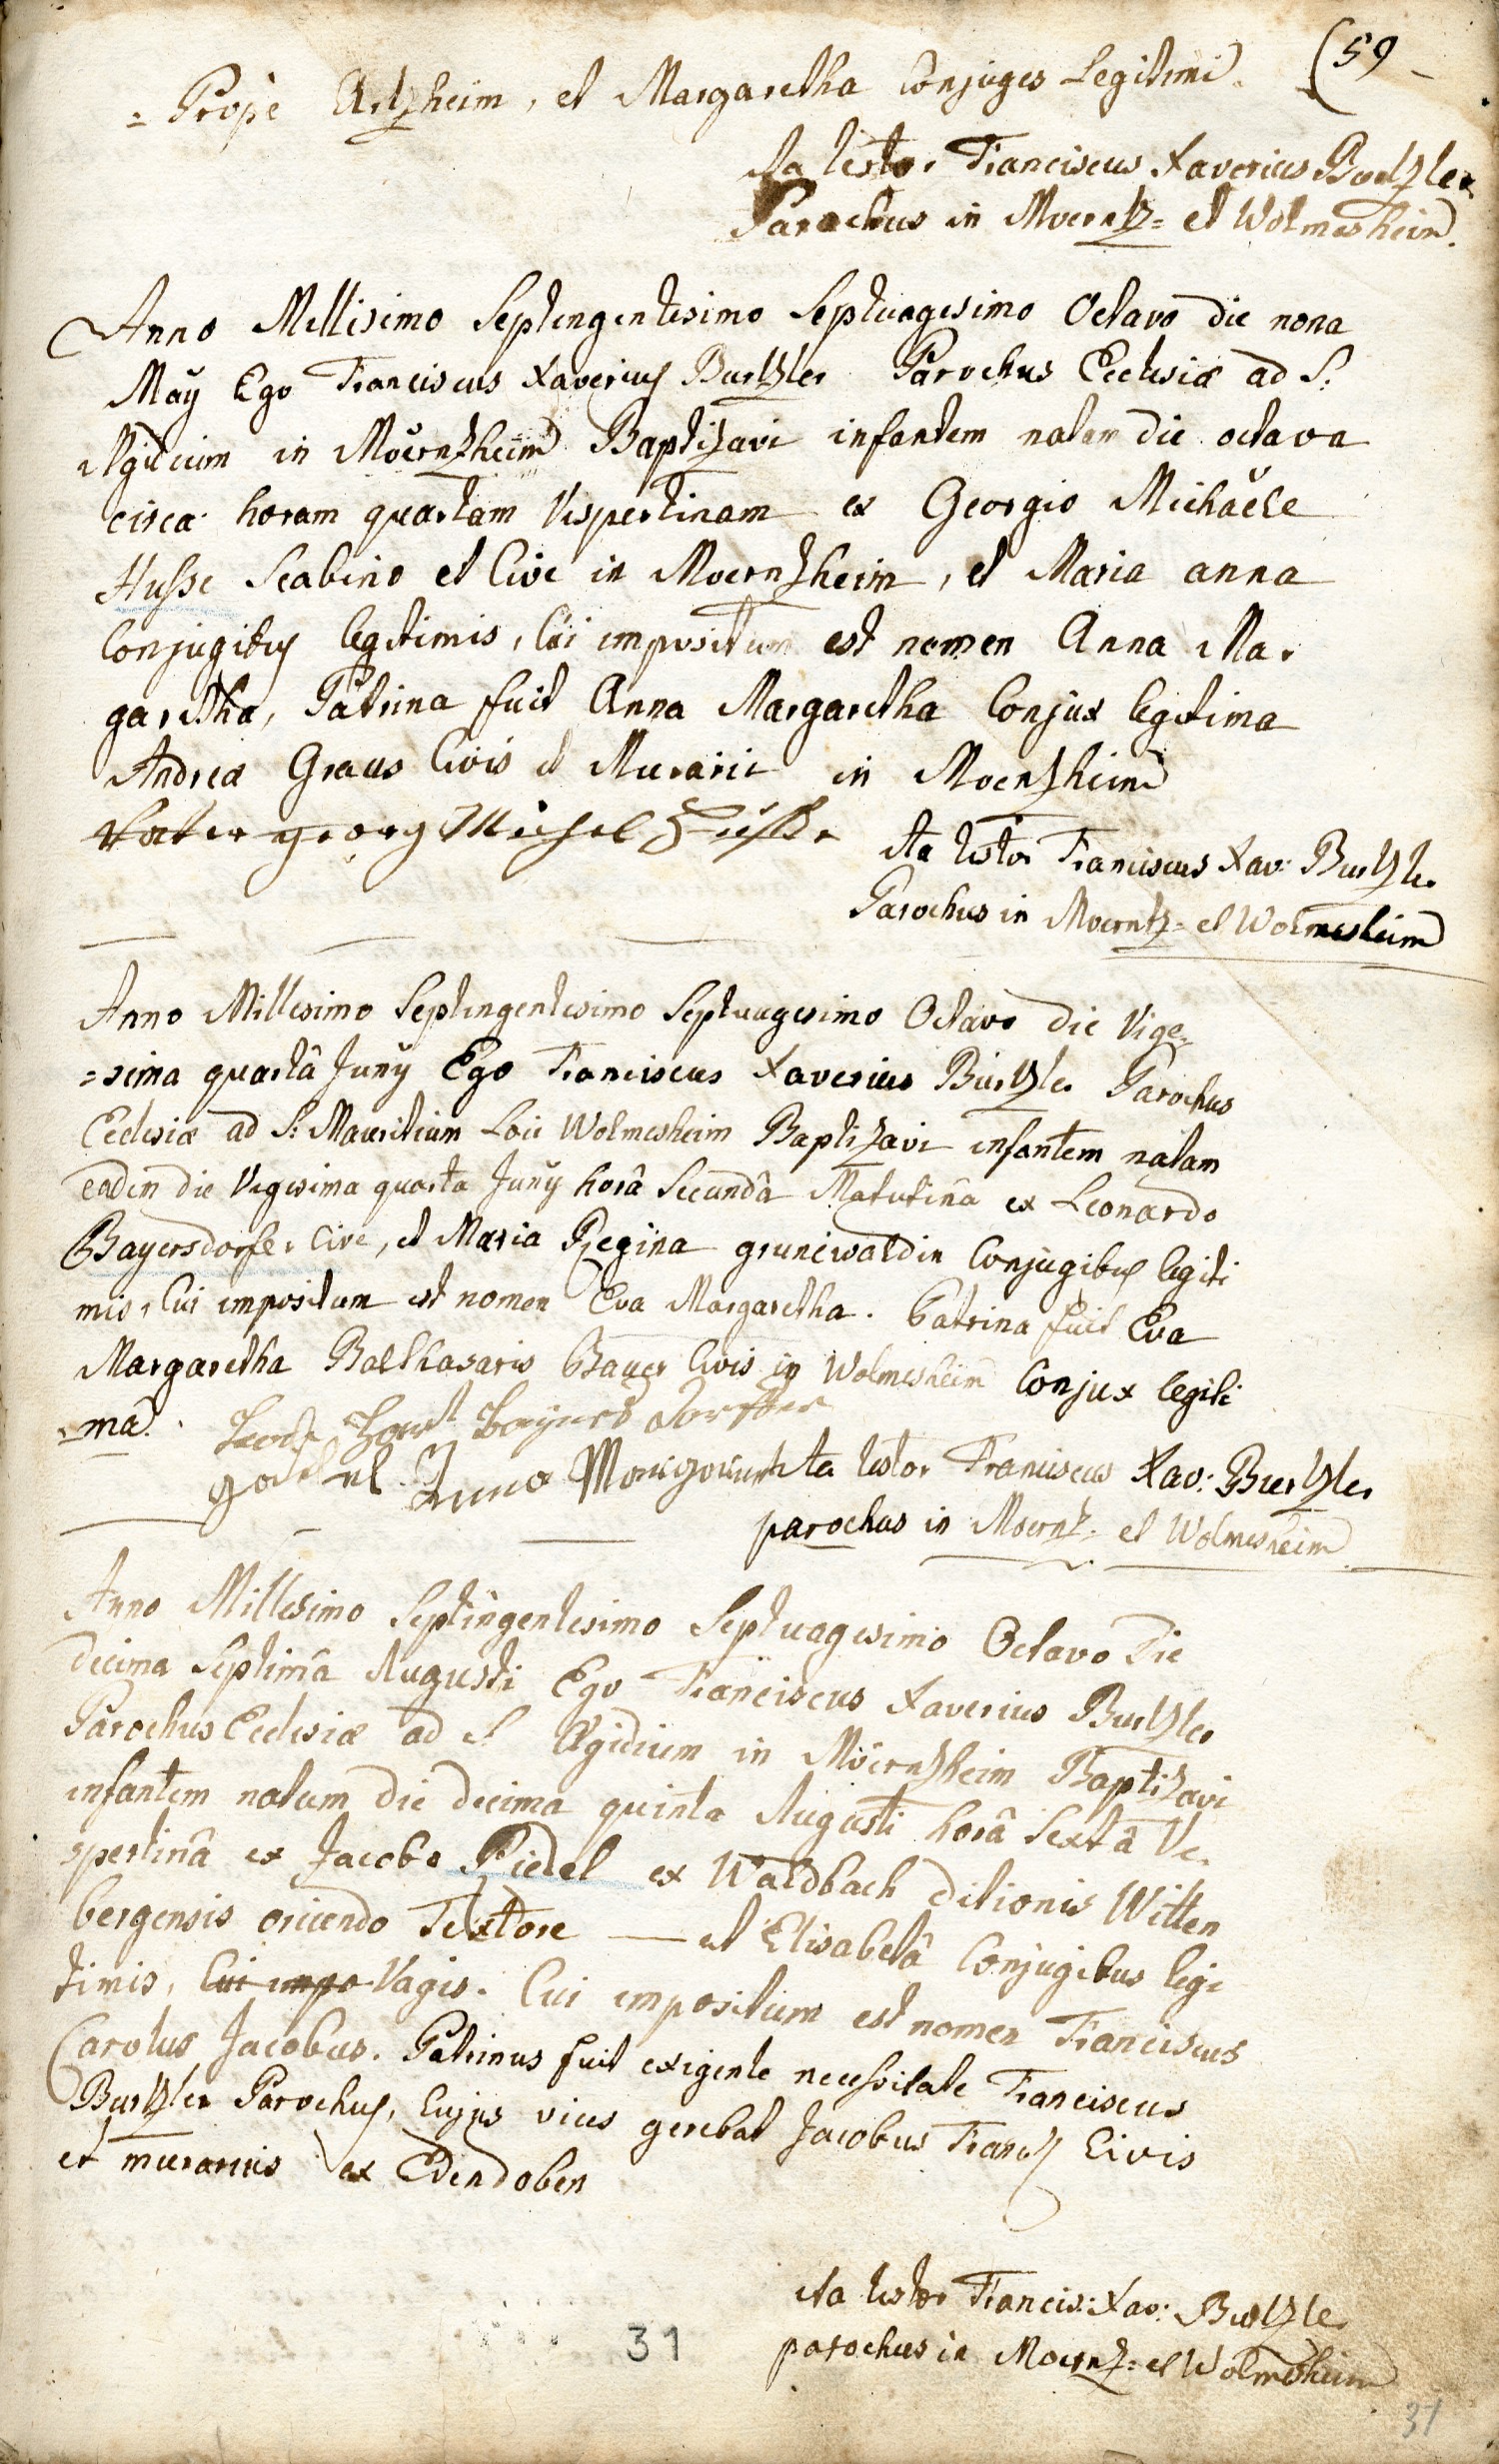 (59
= Prope Artzheim, et Margaretha Conjuges Legitimi.
Ita testor Franciscus Xaverius Burtzler
Parochus in Moerntz= et Wolmesheim.
Anno Millisimo Septengentesimo Septuagesimo Octavo die nona
Maÿ Ego Franciscus Xaverius Burtzler Parochus Ecclesiæ ad S:
Ægidium in Moerntzheim Baptizavi infantem natam die octava
circa horam quartam Vespertinam ex Georgio Michaële
Husse Scabino et Cive in Moernzheim, et Maria anna
Conjugibus legitimis, Cui impositum est nomen Anna Mar
garetha, Patrina fuit Anna Margaretha Conjux legitima
Andreæ Graus Civis et Murarii in Moenzheim
Vatter georg Michel Hüsse
Ita testor Franciscus Xav: Burtzler
Parochus in Moerntz= et Wolmesheim
Anno Millesimo Septingentesimo Septuagesimo Octavo die Vige=
=sima quartâ Junÿ Ego Franciscus Xaverius Burtzler Parochus
Ecclesiæ ad S: Mauritium Loci Wolmesheim Baptizavi infantem natam
eadem die Vigesima quarta Junÿ horâ Secundâ Matutinâ ex Leonardo
Bayersdorfer Cive, et Maria Regina grunewaldin Conjugibus legiti
mis, Cui impositum est nomen Eva Margaretha. Patrina fuit Eva
Margaretha Balthasaris Bauer Civis in Wolmesheim Conjux legiti
=ma.
Bayersdorffer
gottel Anna Margareta
Ita testor Franciscus Xav: Burtzler
parochus in Moerntz= et Wolmesheim
Anno Millesimo Septingentesimo Septuagesimo Octavo Die
decima Septimâ Augusti Ego Franciscus Xaverius Burtzler
Parochus Ecclesiæ ad S. Ægidium in Moernzheim Baptizavi
infantem natum die decima quinta Augusti horâ Sextâ Ve=
spertinâ ex Jacobo Riedel ex Waldbach ditionis Witten
bergensis oriundo Textore — et Elisabetâ Conjugibus legi
timis, Cui impo Vagis. Cui impositum est nomen Franciscus
Carolus Jacobus. Patrinus fuit exigente necessitate Franciscus
Burtzler Parochus, Cujus vices gerebat Jacobus Frantz Civis
et murarius ex Edendoben
Ita testor Francis: Xav: Burtzler
parochus in Moerntz= et Wolmesheim
31
31